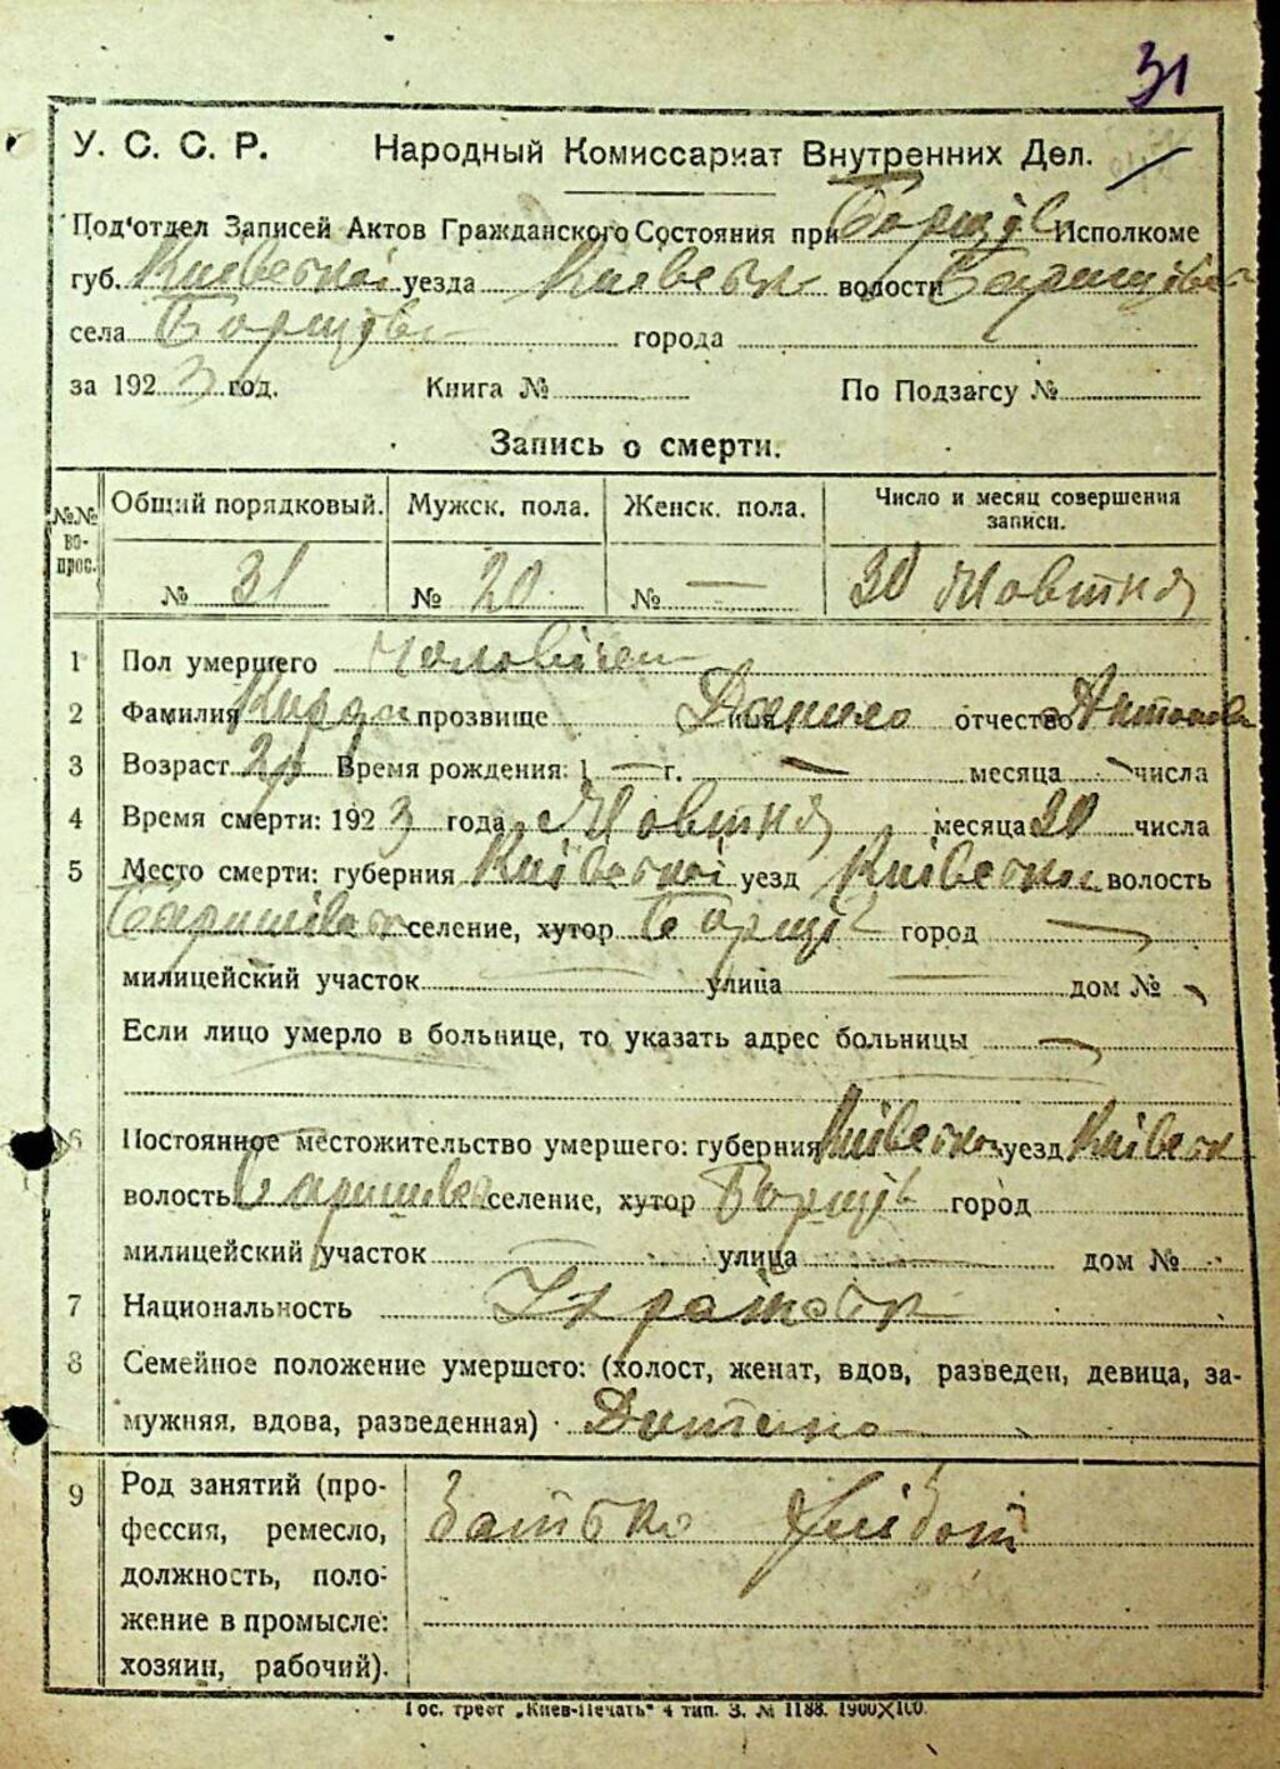 31
У. С. С. Р. Народный Комиссариат Внутренних Дел.
Под'отдел Записей Актов Гражданского Состояния при Борщів Исполкоме
губ. Київської уезда Київськ волости
села Борщів города
за 1923 год. Книга № По Подзагсу №
Запись о смерти.
№№ во-прос. Общий порядковый. Мужск. пола. Женск. пола. Число и месяц совершения записи.
№ 31 № 20 № — 30 Жовтня
1 Пол умершего Чоловічеи
2 Фамилия прозвище имя Данило отчество Антонов
3 Возраст 2р Время рождения: 1 — г. — месяца числа
4 Время смерти: 1923 года Жовтня месяца числа
5 Место смерти: губерния Київської уезд Київськ волость
селение, хутор Борщів город —
милицейский участок — улица — дом №
Если лицо умерло в больнице, то указать адрес больницы —
6 Постоянное местожительство умершего: губерния Київськ уезд Київськ
волость селение, хутор Борщів город
милицейский участок — улица — дом №
7 Национальность
8 Семейное положение умершего: (холост, женат, вдов, разведен, девица, за-
мужняя, вдова, разведенная) Дитина
9 Род занятий (про-
фессия, ремесло,
должность, поло-
жение в промысле:
хозяин, рабочий).
Батько
Гос. трест „Киев-Печать" 4 тип. З. № 1188. 1900X100.